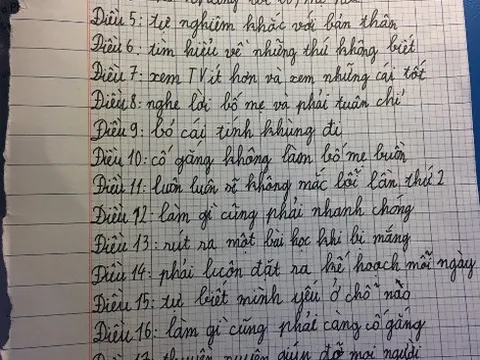 Điều 5: tự nghiêm khắc với bản thân
Điều 6: tìm hiểu về những thứ không biết
Điều 7: xem TV ít hơn va xem những cái tốt
Điều 8: nghe lời bố mẹ và phải tuân chỉ
Điều 9: bỏ cái tính khùng đi
Điều 10: cố gắng không làm bố mẹ buồn
Điều 11: luôn luôn sẽ không mắc lỗi lần thứ 2
Điều 12: làm gì cũng phải nhanh chóng
Điều 13: rút ra một bài học khi bị mắng
Điều 14: phải luôn đặt ra kế hoạch mỗi ngày
Điều 15: tự biết mình yếu ở chỗ nào
Điều 16: làm gì cũng phải càng cố gắng
thường xuyên giúp đỡ mọi người